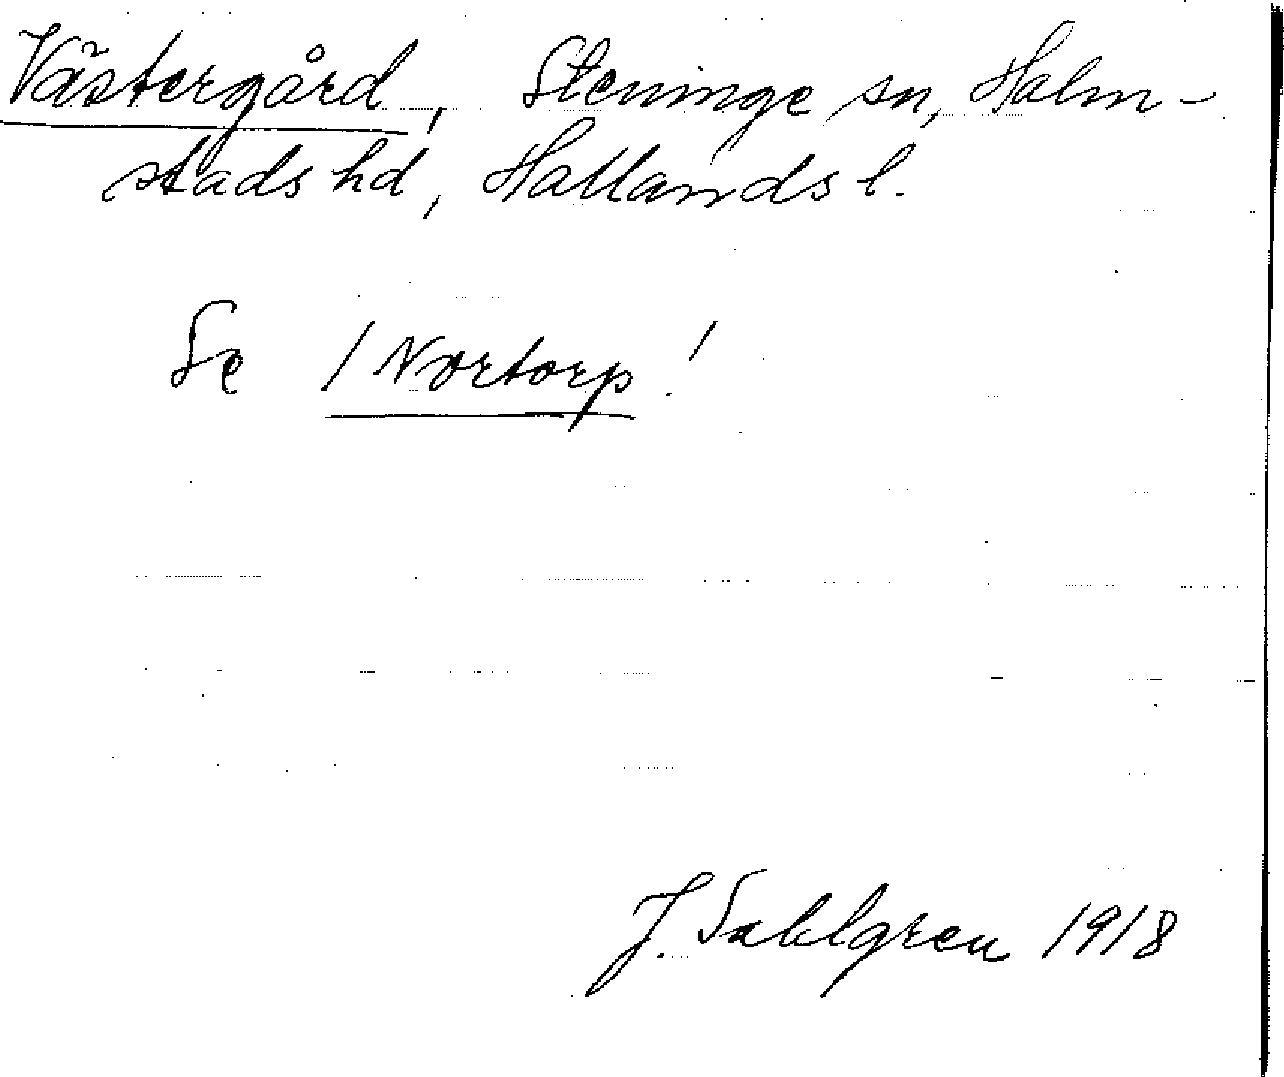 Västergård, Steninge sn, Halm-
stads hd, Hallands l.
Se 1 Nortorp!
J. Sahlgren 1918